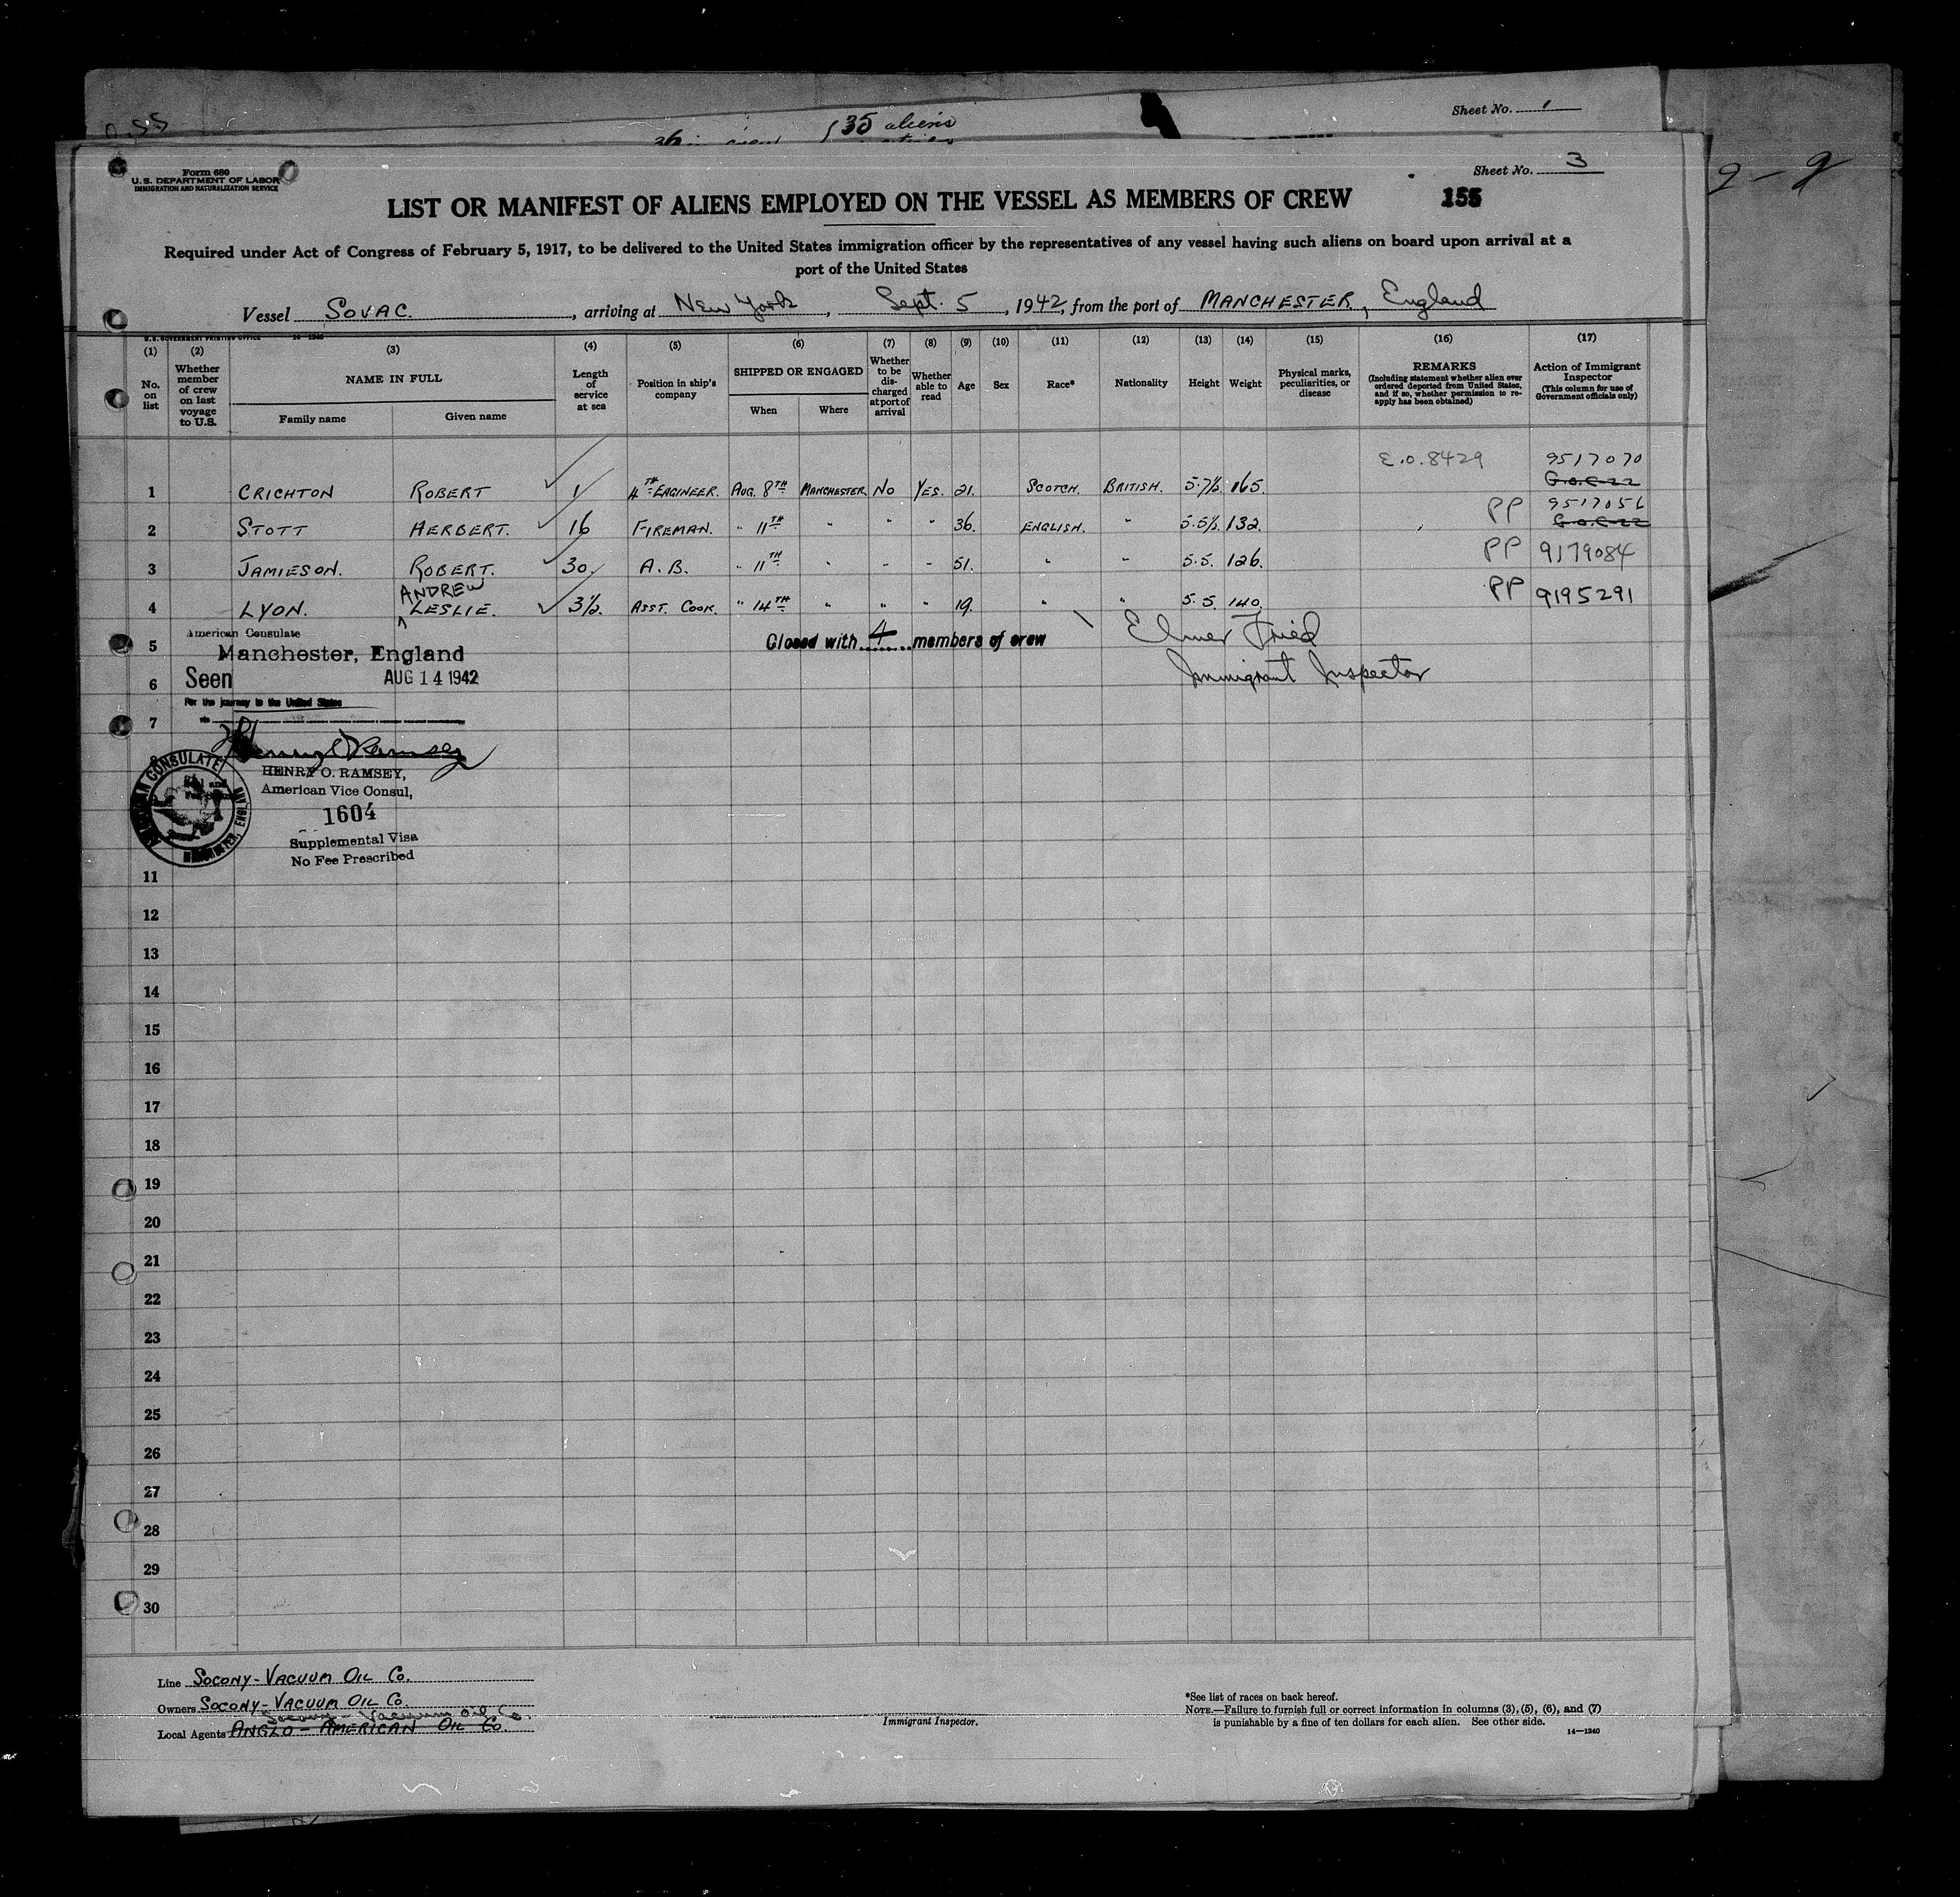 Sheet No. 1
35 aliens
Sheet No. 3
Form 680
U.S. DEPARTMENT OF LABOR
IMMIGRATION AND NATURALIZATION SERVICE
LIST OR MANIFEST OF ALIENS EMPLOYED ON THE VESSEL AS MEMBERS OF CREW
155
Required under Act of Congress of February 5, 1917, to be delivered to the United States immigration officer by the representatives of any vessel having such aliens on board upon arrival at a
port of the United States
Vessel SOVAC., arriving at New York, Sept. 5, 1942, from the port of MANCHESTER, England
U.S. GOVERNMENT PRINTING OFFICE 14—1240
(1) (2) (3) (4) (5) (6) (7) (8) (9) (10) (11) (12) (13) (14) (15) (16) (17)
No. on list
Whether member of crew on last voyage to U.S.
NAME IN FULL
Family name
Given name
Length of service at sea
Position in ship's company
SHIPPED OR ENGAGED
When
Where
Whether to be discharged at port of arrival
Whether able to read
Age
Sex
Race*
Nationality
Height
Weight
Physical marks, peculiarities, or disease
REMARKS
(Including statement whether alien ever ordered deported from United States, and if so, whether permission to re-apply has been obtained)
Action of Immigrant Inspector
(This column for use of Government officials only)
E.O.8429 9517070
1 CRICHTON ROBERT 1 4TH ENGINEER. AUG. 8TH MANCHESTER NO YES. 21. SCOTCH. BRITISH. 5.7½ 165. G.O.C-22
PP 9517056
2 STOTT HERBERT. 16 FIREMAN. " 11TH " " " 36. ENGLISH. " 5.5½ 132. G.O.C-22
3 JAMIESON. ROBERT. 30. A.B. " 11TH " " " 51. " " 5.5. 126. PP 9179084
ANDREW
4 LYON. LESLIE. 3½. ASST. COOK. " 14TH " " " 19. " " 5.5. 140. PP 9195291
American Consulate
5 Manchester, England
Closed with 4 members of crew
Elmer Fried
Immigrant Inspector
6 Seen AUG 14 1942
For the journey to the United States
7 via
Henry O Ramsey
HENRY O. RAMSEY,
American Vice Consul,
1604
Supplemental Visa
No Fee Prescribed
AMERICAN CONSULATE
MANCHESTER, ENGLAND
11
12
13
14
15
16
17
18
19
20
21
22
23
24
25
26
27
28
29
30
Line SOCONY-VACUUM OIL CO.
Owners SOCONY-VACUUM OIL CO.
Socony-Vacuum Oil Co.
Local Agents ANGLO-AMERICAN OIL CO.
Immigrant Inspector.
*See list of races on back hereof.
NOTE.—Failure to furnish full or correct information in columns (3), (5), (6), and (7)
is punishable by a fine of ten dollars for each alien. See other side.
14—1240